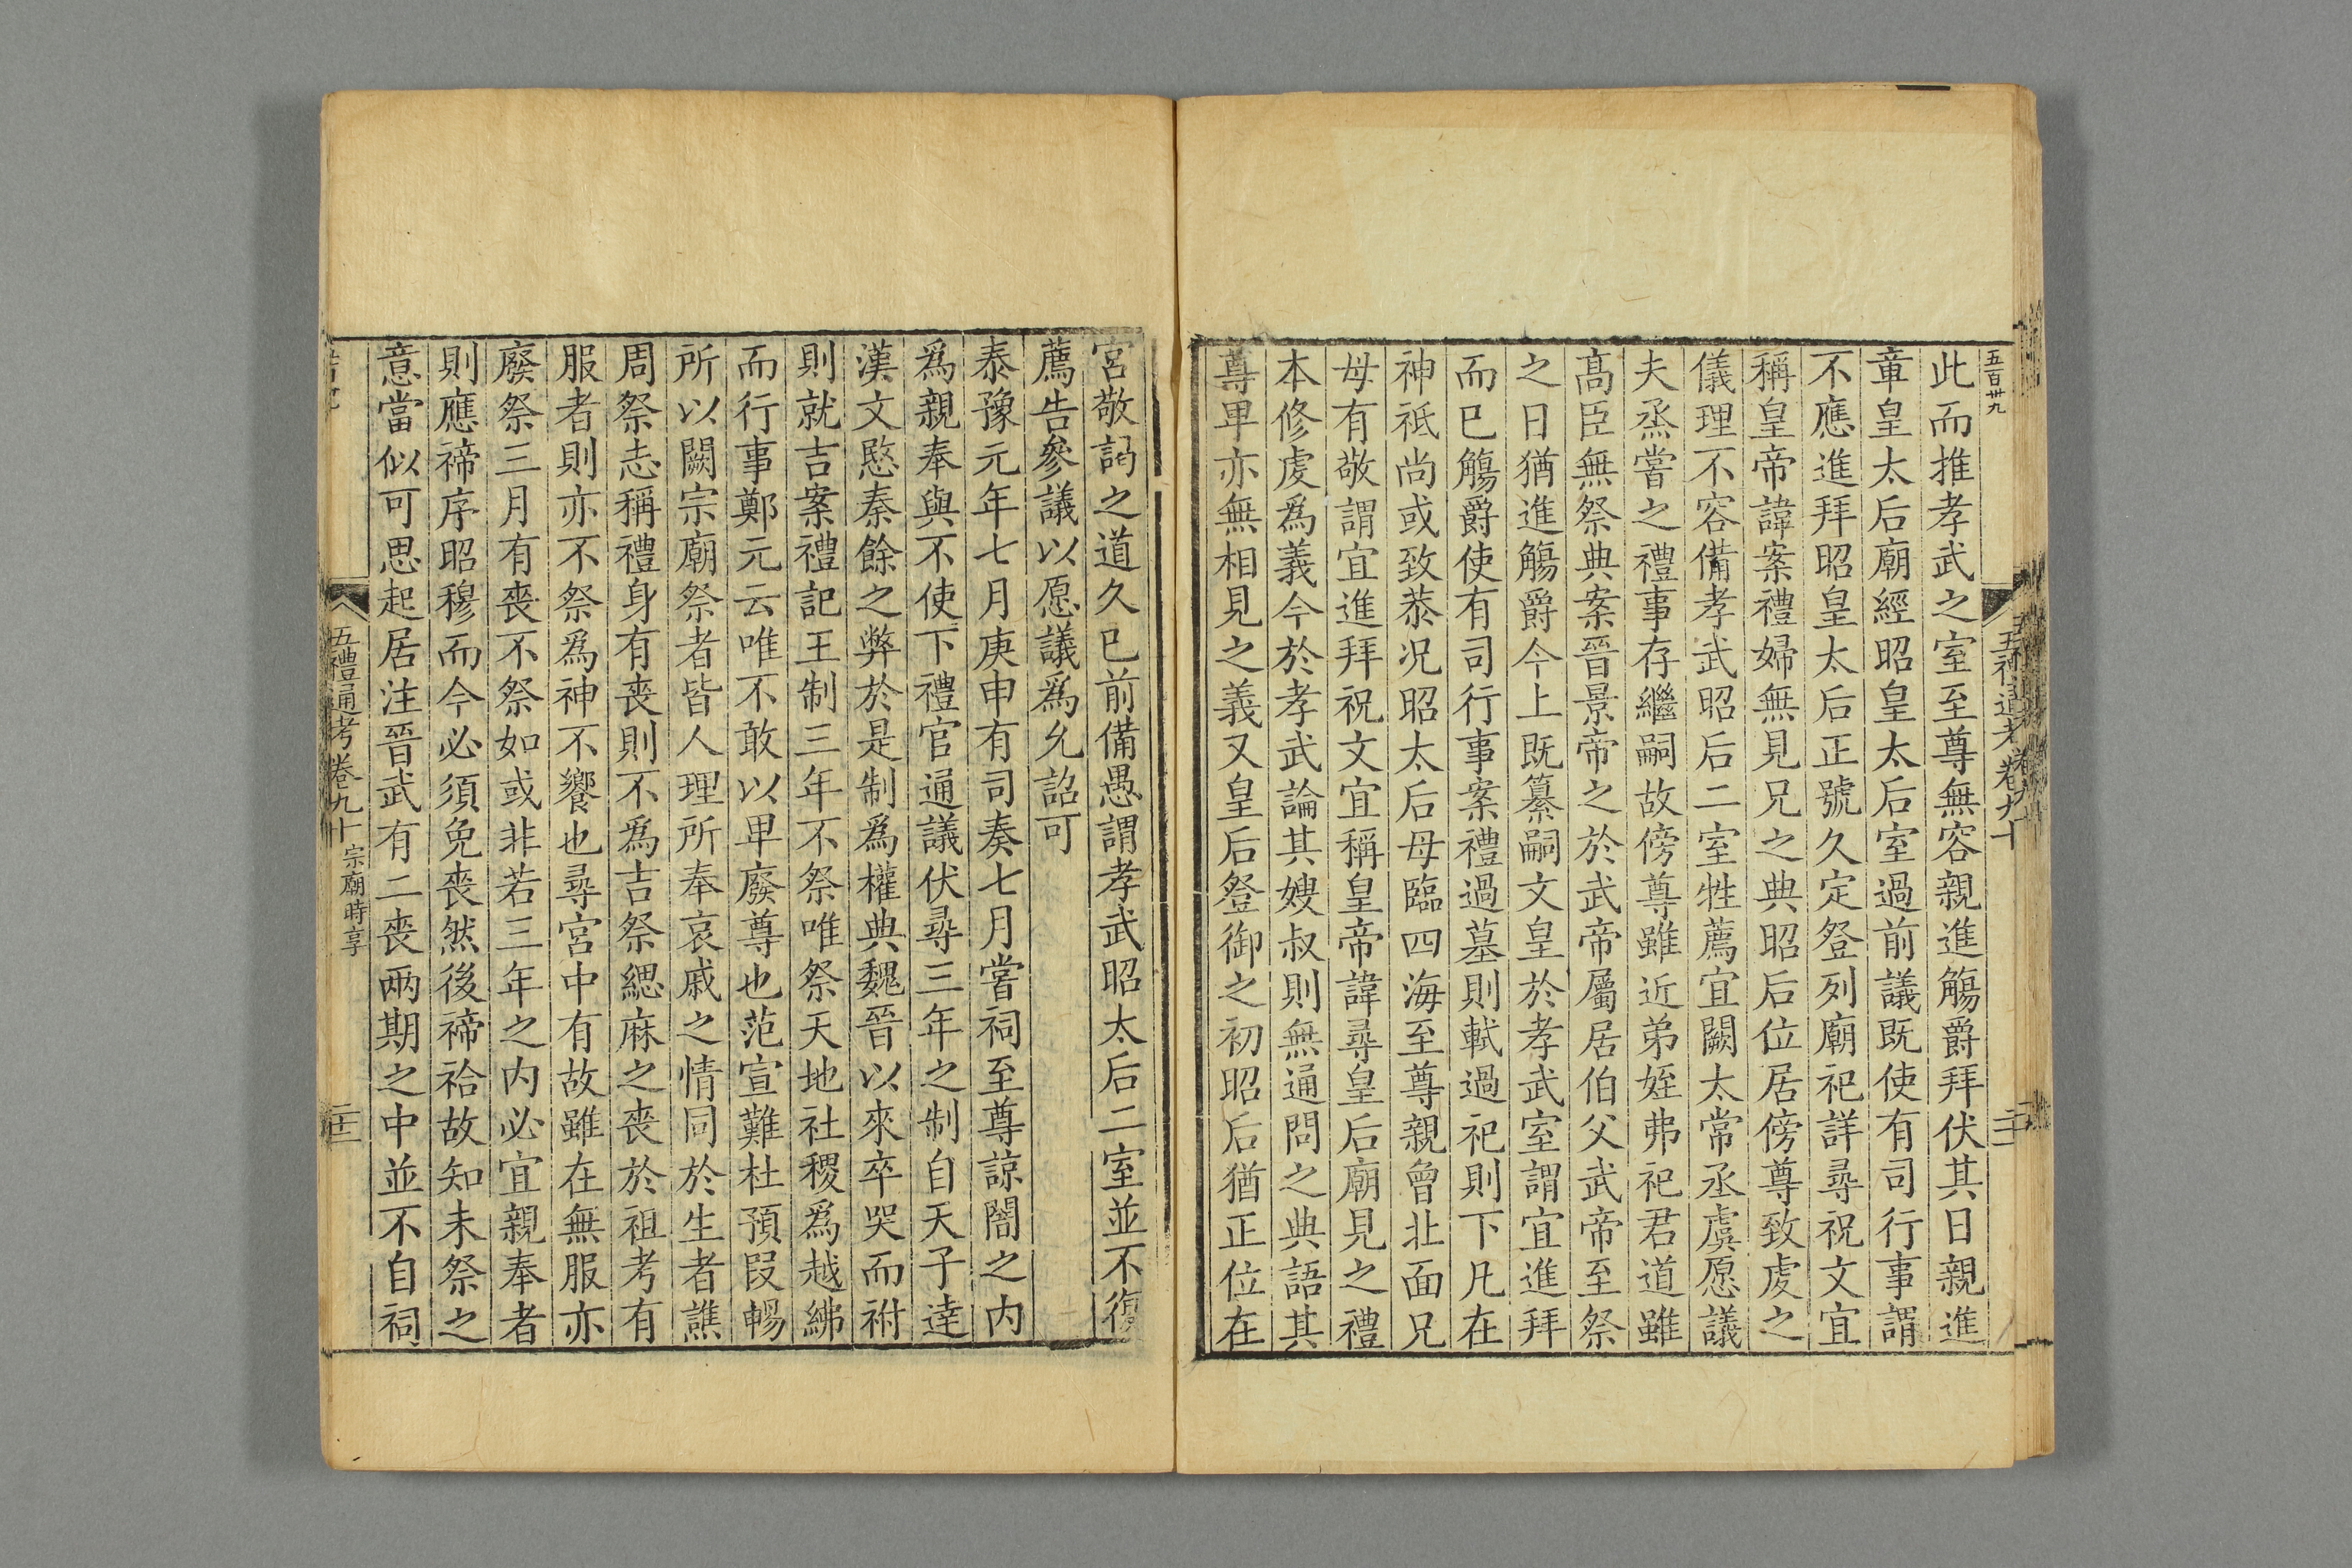 五百卅九
此而推孝武之室至尊無容親進觴爵拜伏其日親進
章皇太后廟經昭皇太后室過前議既使有司行事謂
不應進拜昭皇太后正號久定登列廟祀詳尋祝文宜
稱皇帝諱案禮婦無見兄之典昭后位居傍尊致虔之
儀理不容備孝武昭后二室牲薦宜闕太常丞虞愿議
夫烝嘗之禮事存繼嗣故傍尊雖近弟姪弗祀君道雖
髙臣無祭典案晉景帝之於武帝屬居伯父武帝至祭
之日猶進觴爵今上既纂嗣文皇於孝武室謂宜進拜
而巳觴爵使有司行事案禮過墓則軾過祀則下凡在
神祇尚或致恭况昭太后母臨四海至尊親曾北面兄
母有敬謂宜進拜祝文宜稱皇帝諱尋皇后廟見之禮
本修虔爲義今於孝武論其嫂叔則無通問之典語其
尊卑亦無相見之義又皇后登御之初昭后猶正位在
宮敬謁之道久已前備愚謂孝武昭太后二室並不復
薦告參議以愿議爲允詔可
泰豫元年七月庚申有司奏七月嘗祠至尊諒闇之内
爲親奉與不使下禮官通議伏尋三年之制自天子達
漢文愍秦餘之弊於是制爲權典魏晉以來卒哭而祔
則就吉案禮記王制三年不祭唯祭天地社稷爲越紼
而行事鄭元云唯不敢以卑廢尊也范宣難杜預叚暢
所以闕宗廟祭者皆人理所奉哀戚之情同於生者譙
周祭志稱禮身有喪則不爲吉祭緦麻之喪於祖考有
服者則亦不祭爲神不饗也尋宮中有故雖在無服亦
廢祭三月有喪不祭如或非若三年之内必宜親奉者
則應禘序昭穆而今必須免喪然後禘祫故知未祭之
意當似可思起居注晉武有二喪兩期之中並不自祠
五禮通考卷九十 宗廟時享
二十二